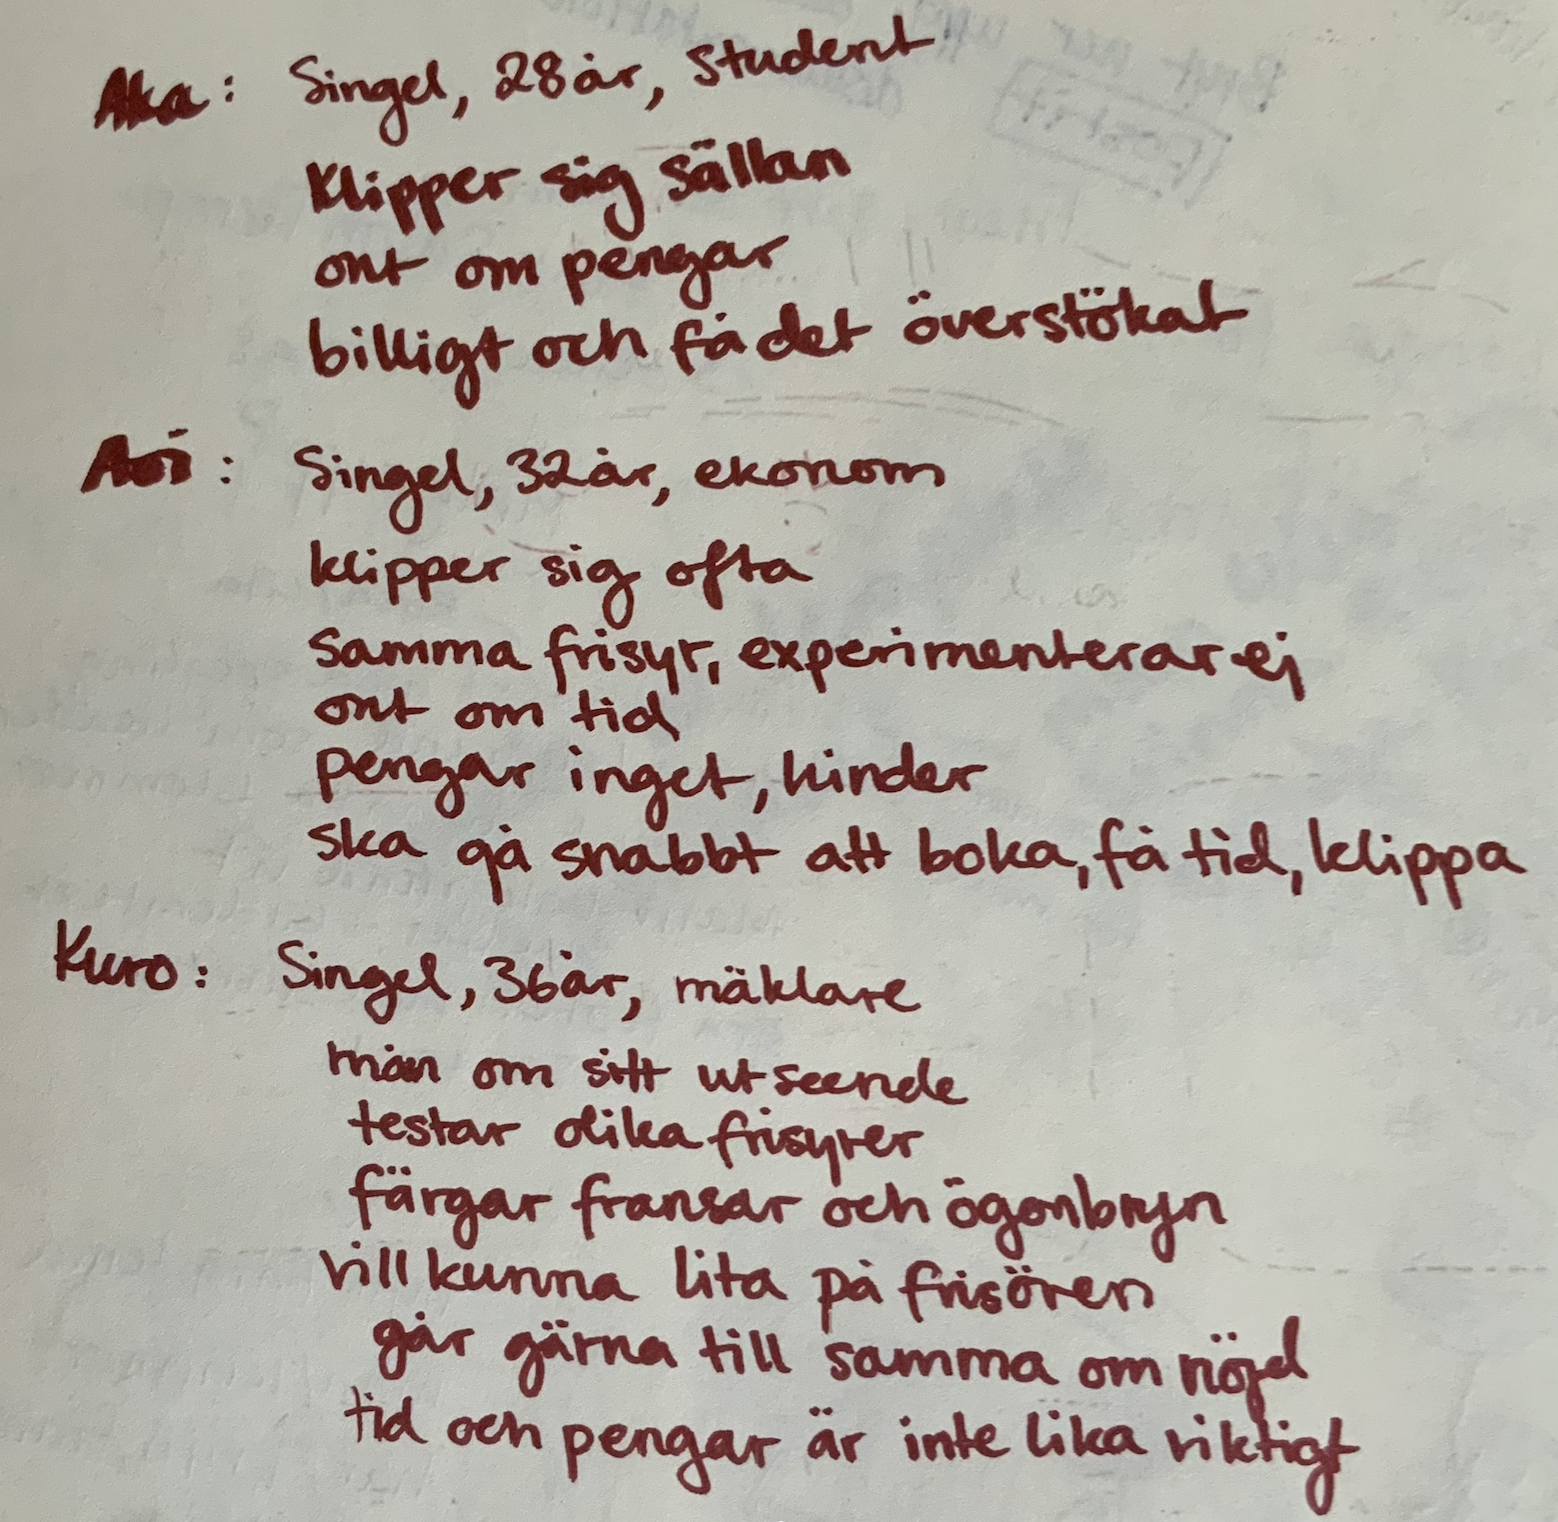 Aka: Singel, 28år, student
Klipper sig sällan
ont om pengar
billigt och få det överstökat
Aoi: Singel, 32år, ekonom
klipper sig ofta
samma frisyr, experimenterar ej
ont om tid
pengar inget, hinder
ska gå snabbt att boka, få tid, klippa
Kuro: Singel, 36år, mäklare
mån om sitt utseende
testar olika frisyrer
färgar fransar och ögonbryn
vill kunna lita på frisören
går gärna till samma om nöjd
tid och pengar är inte lika viktigt